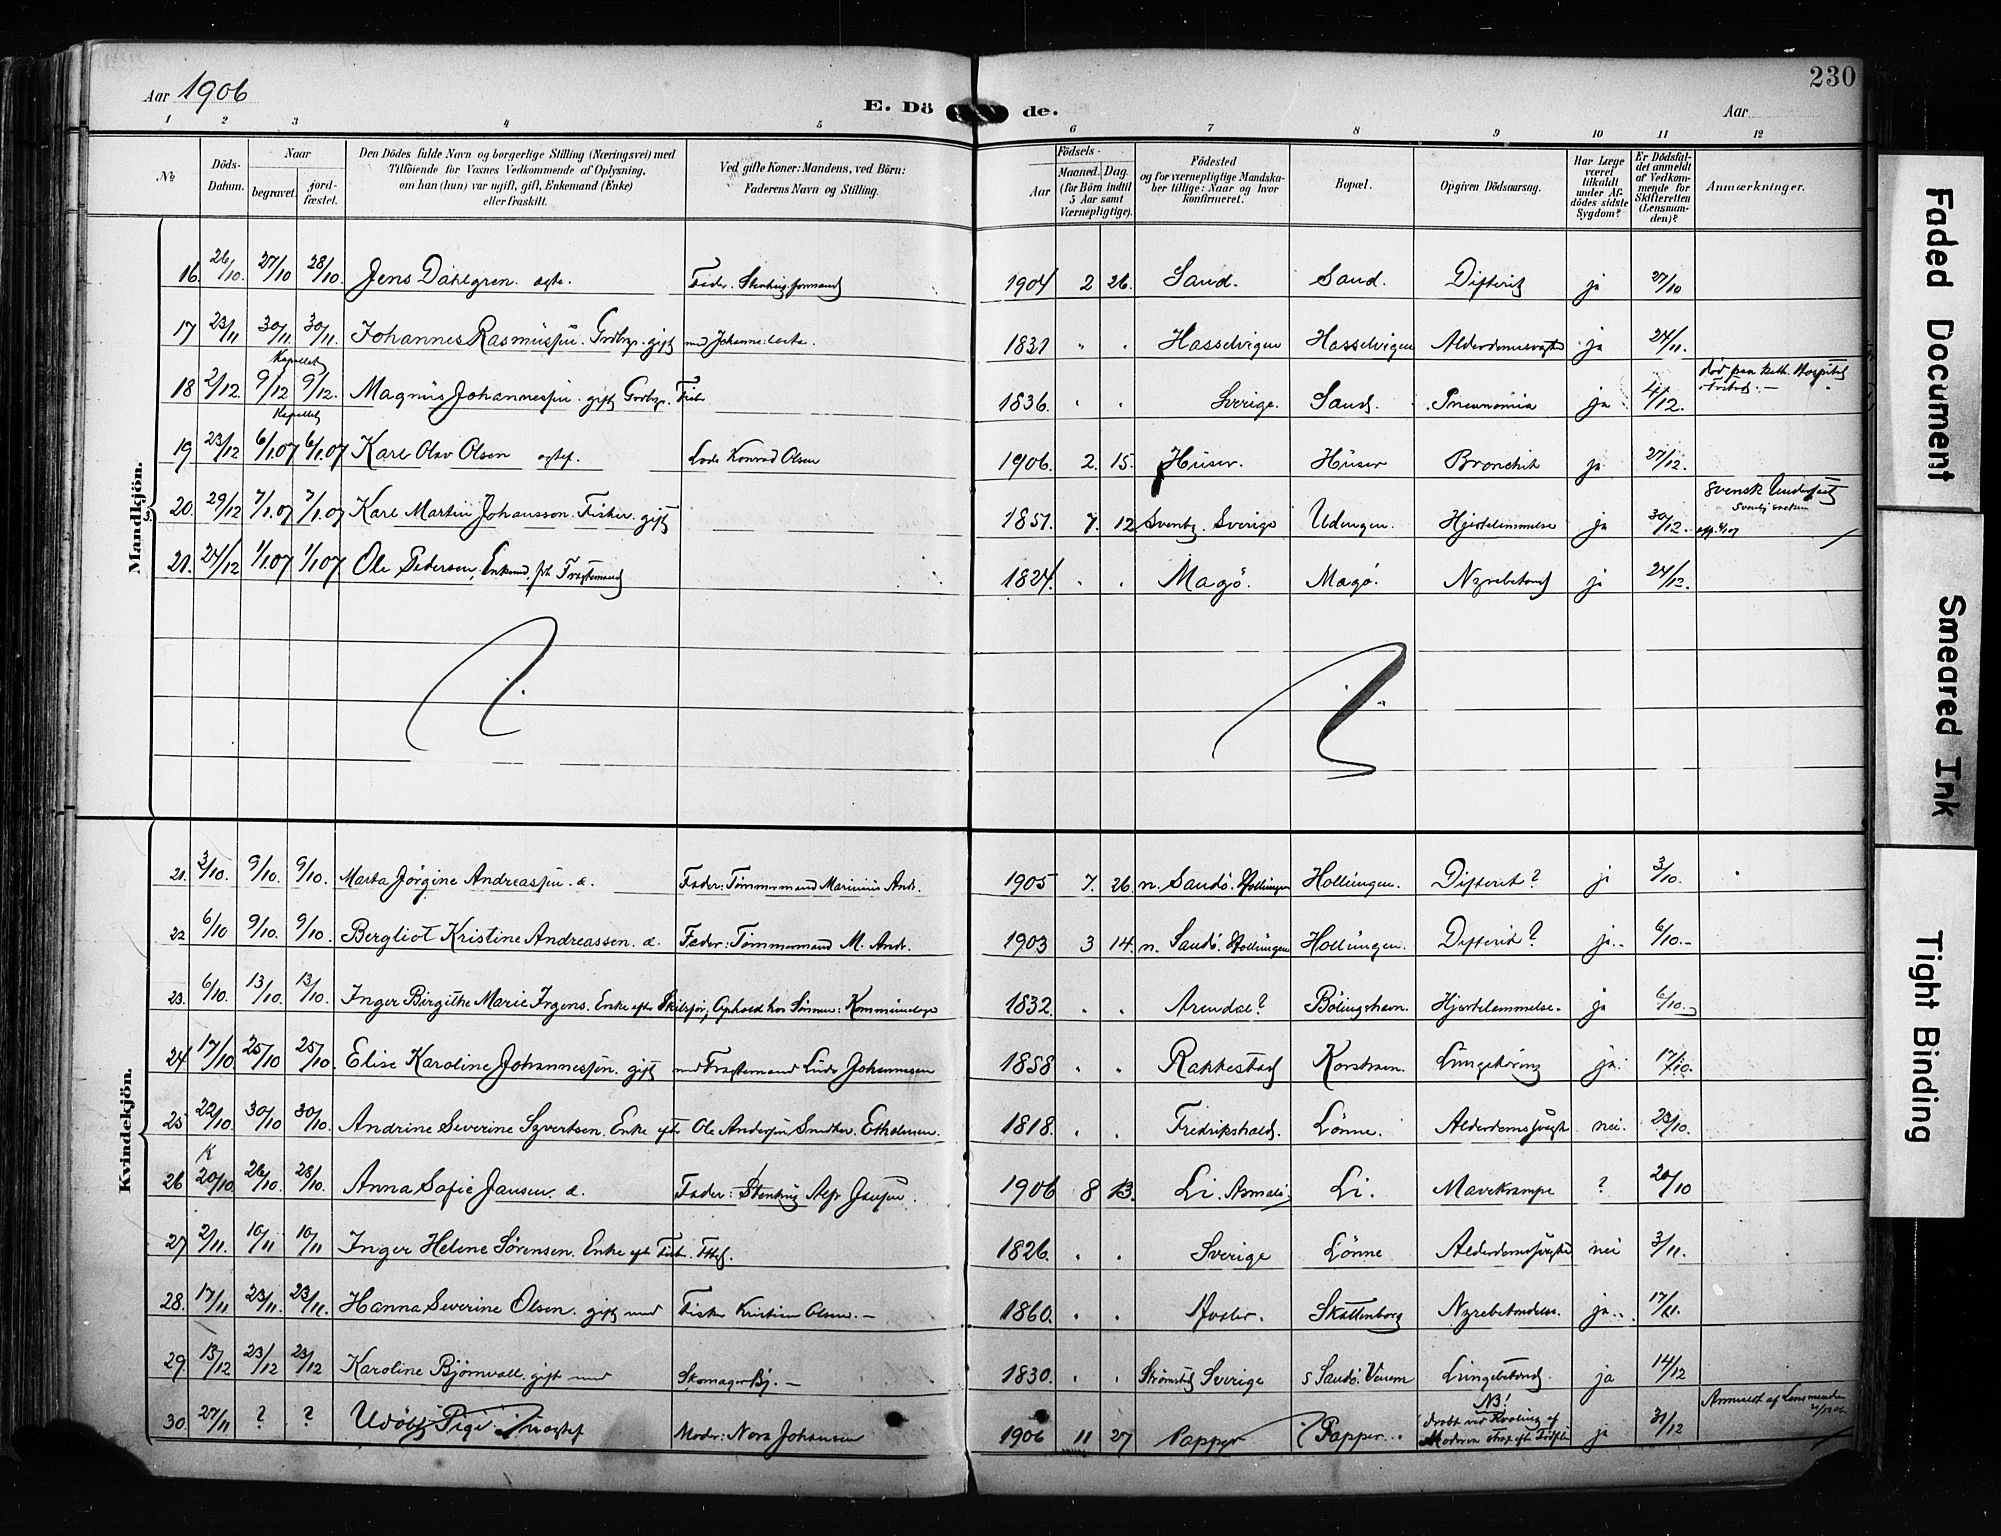 Aar 1906
E. Dö de.
Aar
230
1 2 3 4 5 6 7 8 9 10 11 12
No
Döds-Datum.
Naar
begravet.
jordfæstet.
Den Dödes fulde Navn og borgerlige Stilling (Næringsvei) med
Tilföiende for Voxnes Vedkommende af Oplysning,
om han (hun) var ugift, gift, Enkemand (Enke)
eller fraskilt.
Ved gifte Koner: Mandens, ved Börn:
Faderens Navn og Stilling.
Födsels-
Aar
Maaned. Dag.
(for Börn indtil
5 Aar samt
Værnepligtige).
Födested
og for værnepligtige Mandska-
ber tillige: Naar og hvor
konfirmeret.
Bopæl.
Opgiven Dödsaarsag.
Har Læge
været
tilkaldt
under Af-
dödes sidste
Sygdom?
Er Dödsfal-
det anmeldt
af Vedkom-
mende for
Skifteretten
(Lensman-
den)?
Anmærkninger.
Mandkjön.
16. 26/10. 27/10 28/10. Jens Dahlgren. ægte. Fader. 1904 2 26. Sand. Sand. Difterit ja 27/10
17 23/11 30/11. 30/11. Johannes Rasmussen. Grdbr. gift med Johanne 1831 " . Hasselvigen Hasselvigen Alderdomssvaghed ja 24/11.
Kapellet
18 2/12. 9/12 9/12. Magnus Johannessen. gift Grdbr. Fisker 1836. . . Sverige. Sand. Pneumonia ja 4/12. död paa Kath. Hospital Fr.stad. —
Kapellet
19 23/12 6/1.07 6/1.07 Karl Olav Olsen ægtef. Lods Konrad Olsen 1906. 2. 15. Huser. Huser Bronchit ja 27/12.
20. 29/12 7/1.07 7/1.07 Karl Martin Johansson. Fisker. gift 1851. 7. 12 Svenby. Sverige Udengen. Hjertelammelse ja 30/12. svensk Undersaat
21. 24/12 1/1.07 1/1.07 Ole Pedersen, Enkemd. fh. Fragtemand 1824. . . Magö. Magö. Nyrebetænd. ja 24/12.
Kvindekjön.
21. 3/10. 9/10. 9/10. Marta Jörgine Andreassen. æ. Fader: Tömmermand Marinius Andr. 1905 7. 26. n. Sandö. Hollungen Hollungen. Difterit? ja 3/10.
22 6/10 9/10. 9/10. Bergliot Kristine Andreassen. æ. Fader: Tömmermand M. Andr. 1903 3 14. n. Sandö. Hollungen Hollungen. Difterit? ja. 6/10.-
23. 6/10. 13/10. 13/10. Inger Birgithe Marie Irgens. Enke efter Skibsför; Ophold hos Sönnen: Kommunelæge 1832. . . Arendal? Bölingshavn. Hjertelammelse. ja 6/10.
24 17/10. 25/10 25/10. Elise Karoline Johannessen. gift med Fragtemand Ludv Johannessen 1858 . . Rakkestad Korshavn. Lungetæring ja. 17/10.
25 22/10. 30/10 30/10. Andrine Severine Syvertsen. Enke efter Ole Andersen Snedker. Ethólmen. 1818. . . Fredrikshald. Lönne. Alderdomssvaghed nei. 23/10.
K
26 20/10. 26/10. 28/10. Anna Sofie Jansen. æ. Fader: Stenhug Alfr Jansen. 1906 8 13. Li. Asmalö. Li. Mavekrampe ? 20/10
27 2/11. 10/11 10/11 Inger Helene Sörensen. Enke eft Fisk. 1826. . . Sverige Lönne Alderdomssvaghed nei 3/11.
28. 17/11 23/11. 23/11. Hanna Severine Olsen. gift med Fisker Kristian Olsen. — 1860. . . Hvaler. Skattenborg Nyrebetændelse. ja. 17/11.
29. 13/12 23/12 23/12 Karoline Bjørnvall. gift med Skomager Bj. — 1830. . . Strømstad Sverige s Sandö. Venem Lungebetænd. ja 14/12
30. 27/11 ? ? Udöbt Pige uægtef Moder: Nora Johansen 1906 11 27 Papper Papper. NB! dræbt ved Kvæling af Moderen strax efter Födselen ja 31/12 Anmeldt af Lensmanden
Faded Document
Smeared Ink
Tight Binding